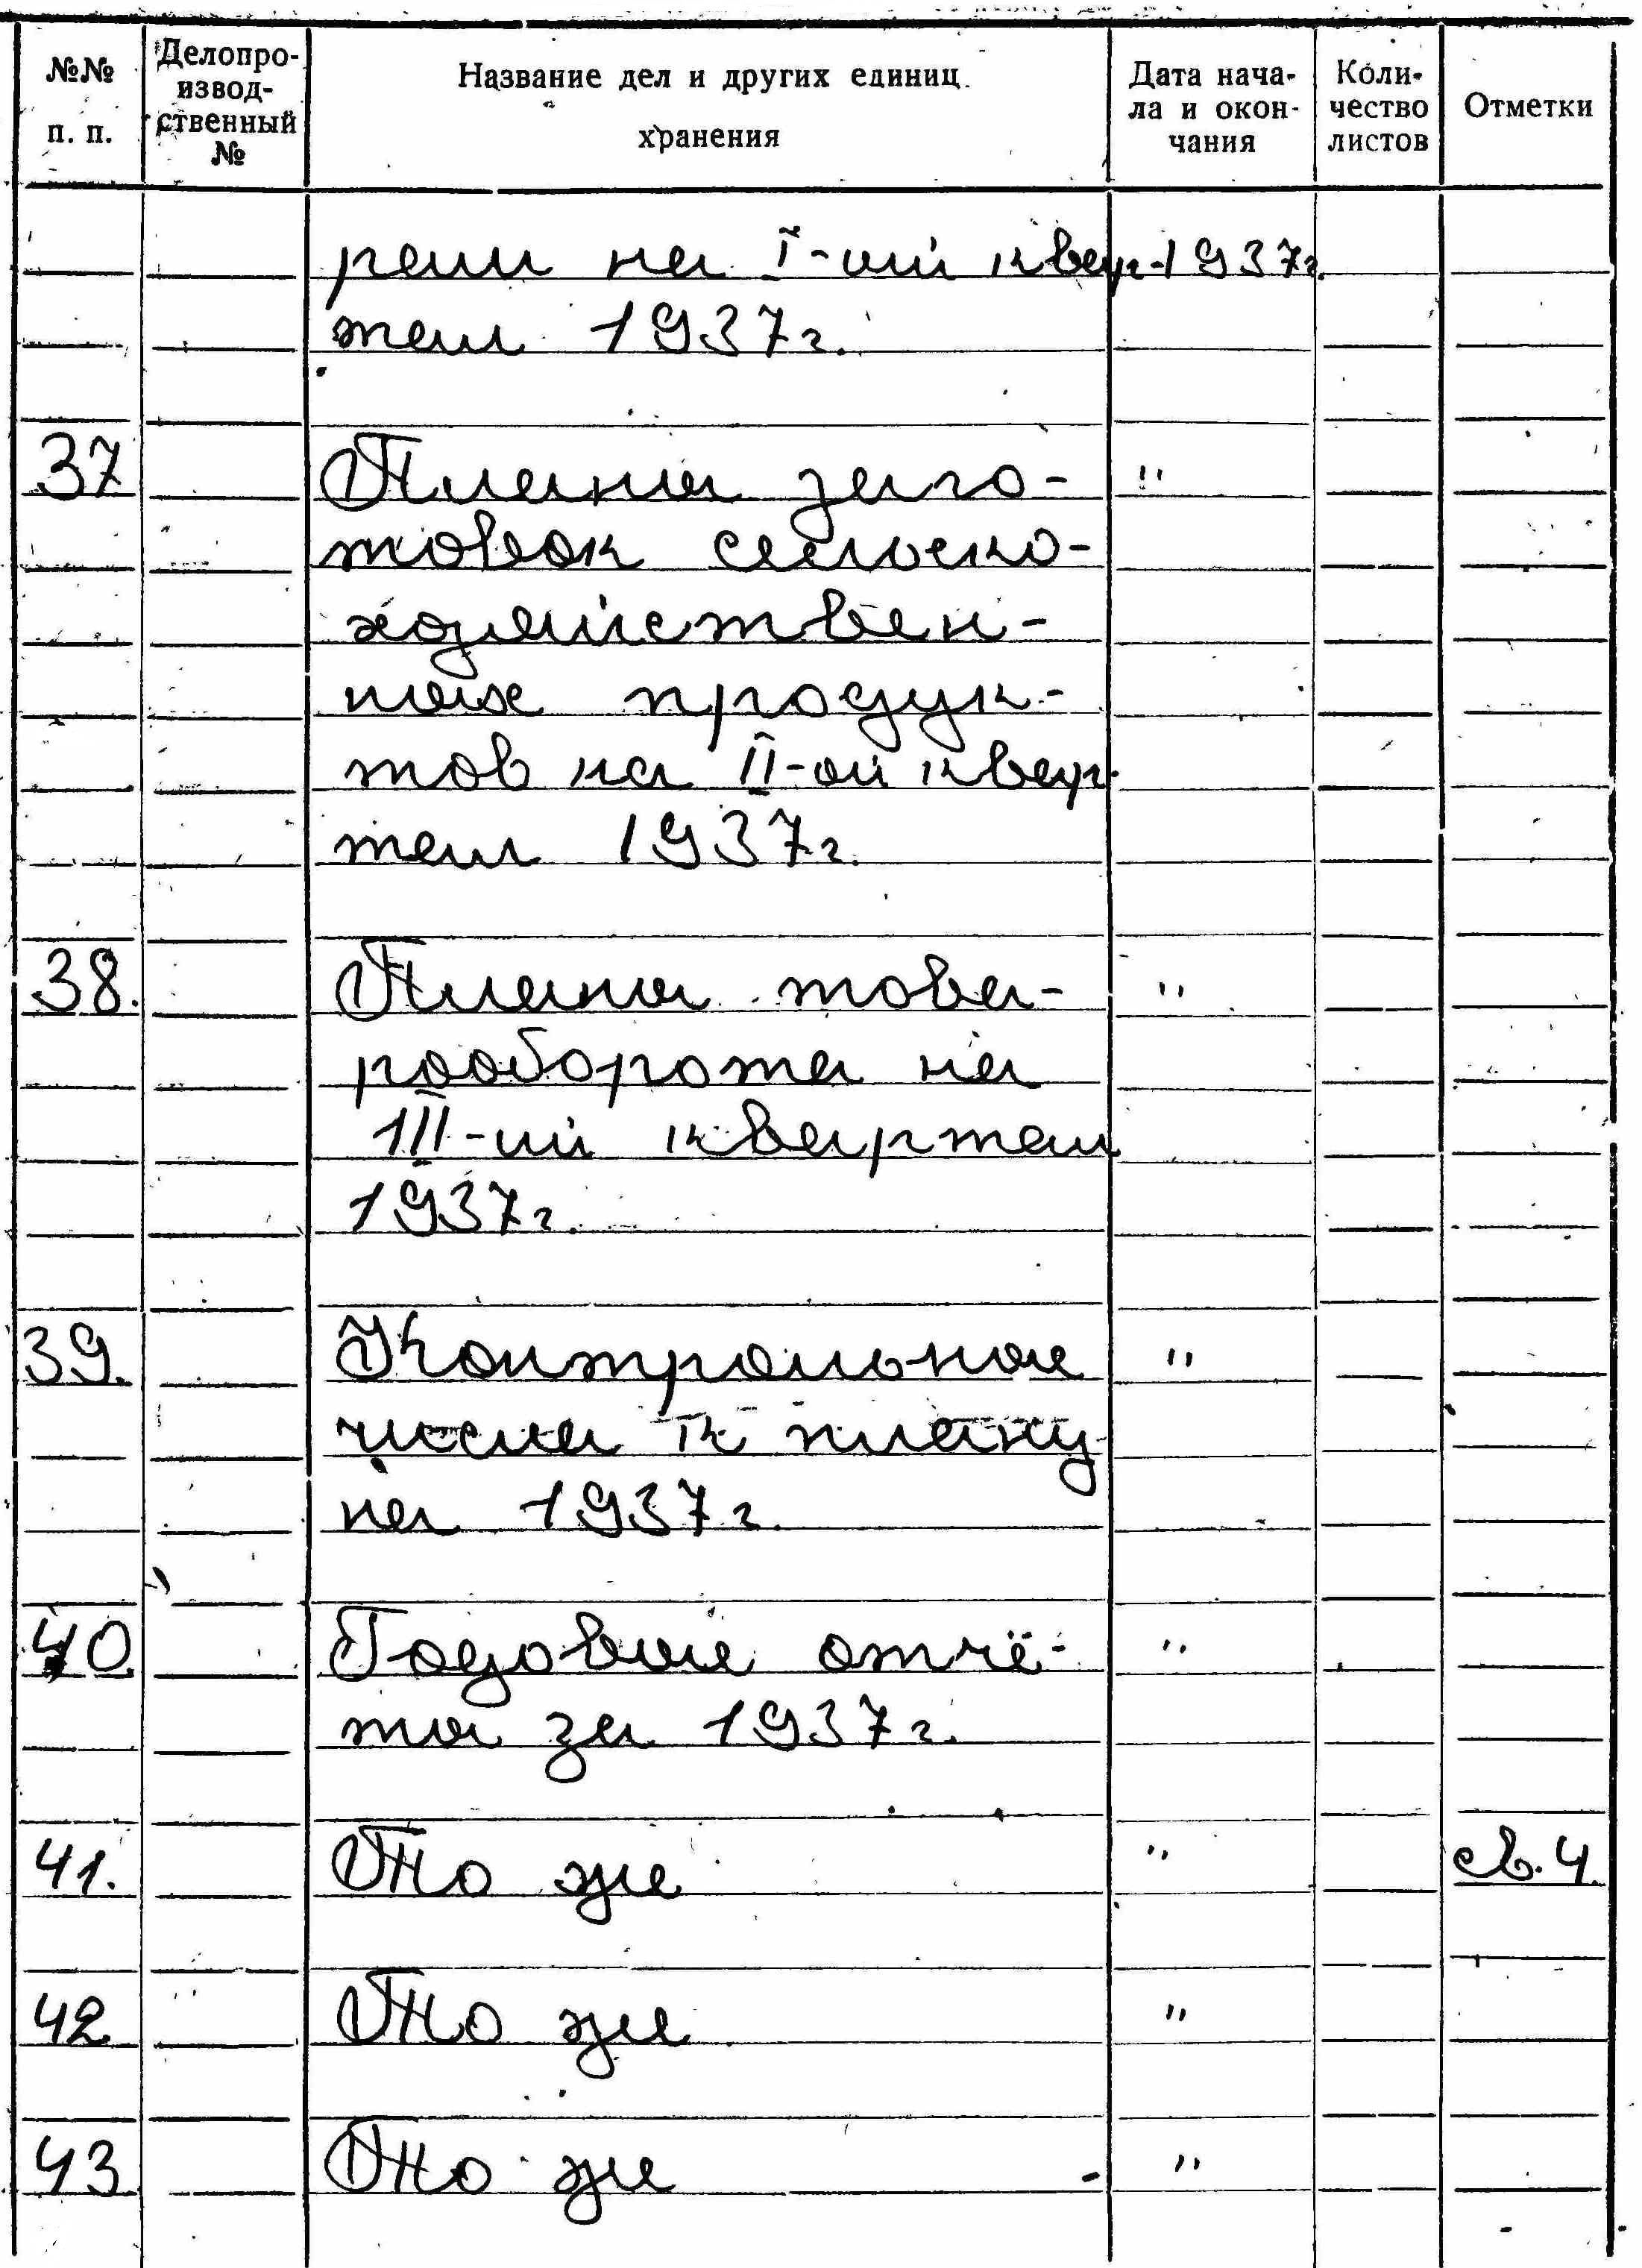 №№ п. п.
Делопро-
извод-
ственный
№
Название дел и других единиц
хранения
Дата нача-
ла и окон-
чания
Коли-
чество
листов
Отметки
рели на I-ый квар- 1937г.
тал 1937г.
37 Планы заго- "
товок сельско-
хозяйствен-
ных продук-
тов на II-ой квар-
тал 1937г.
38. Планы това- "
рооборота на
III-ий квартал
1937г.
39. Контрольные "
числа к плану
на 1937г.
40 Годовые отчё- "
ты за 1937г.
41. То же " св. 4.
42 То же "
43 То же "